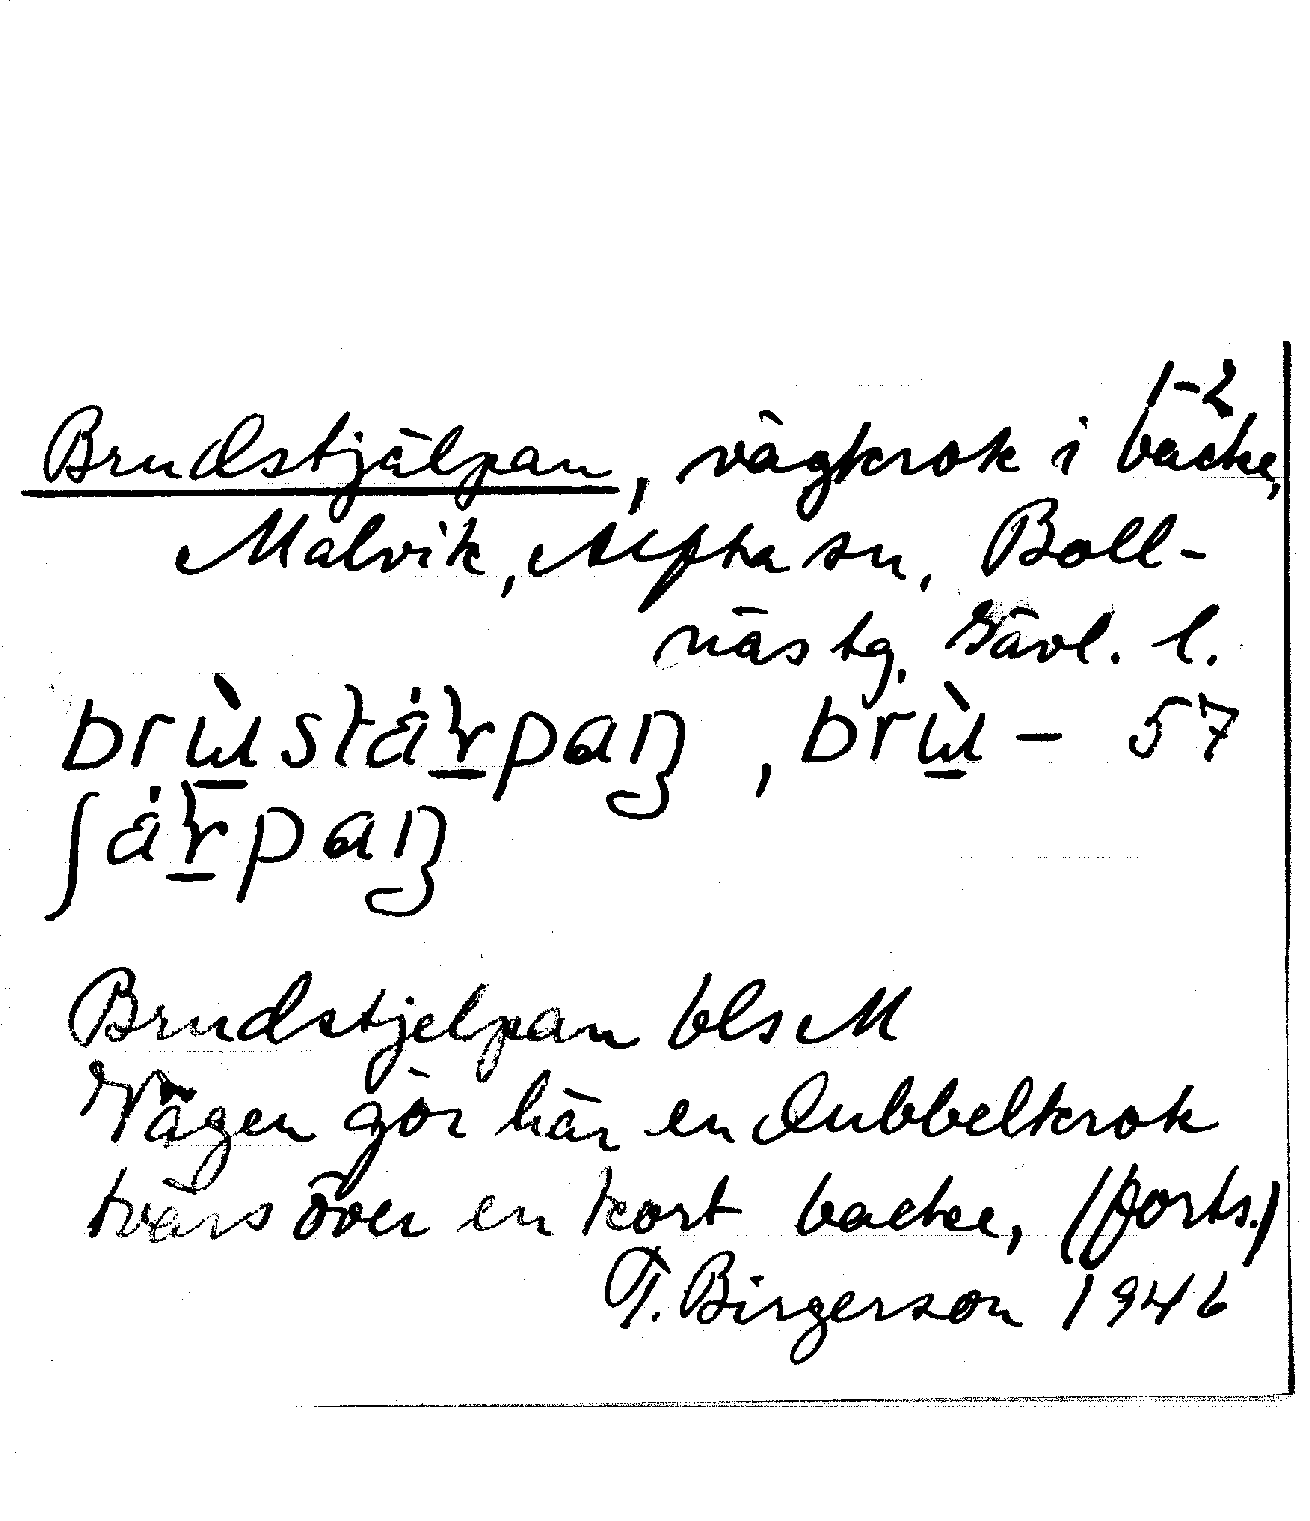 1-2
Brudstjälpan, vägkrok i backe,
Malvik, Alfta sn, Boll-
näs tg. Gävl. l.
57
Brudstjelpan bls M
Vägen gör här en dubbelkrok
tvärs över en kort backe, (forts.)
T. Birgerson 1946